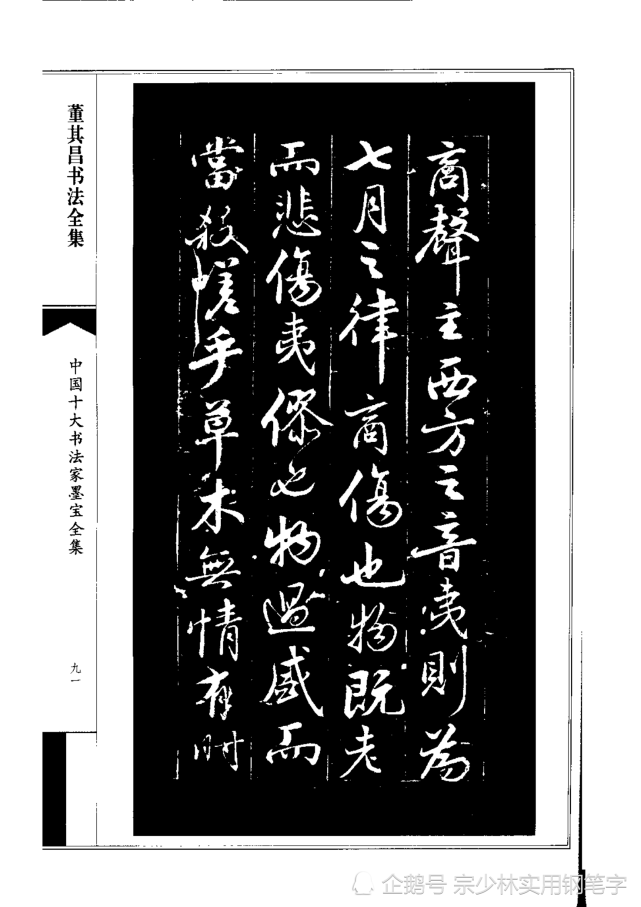 商聲主西方之音夷則為
七月之律商傷也物既老
而悲傷夷僇也物過盛而
當殺嗟乎草木無情有時
董其昌书法全集
中国十大书法家墨宝全集
九一
企鹅号 宗少林实用钢笔字